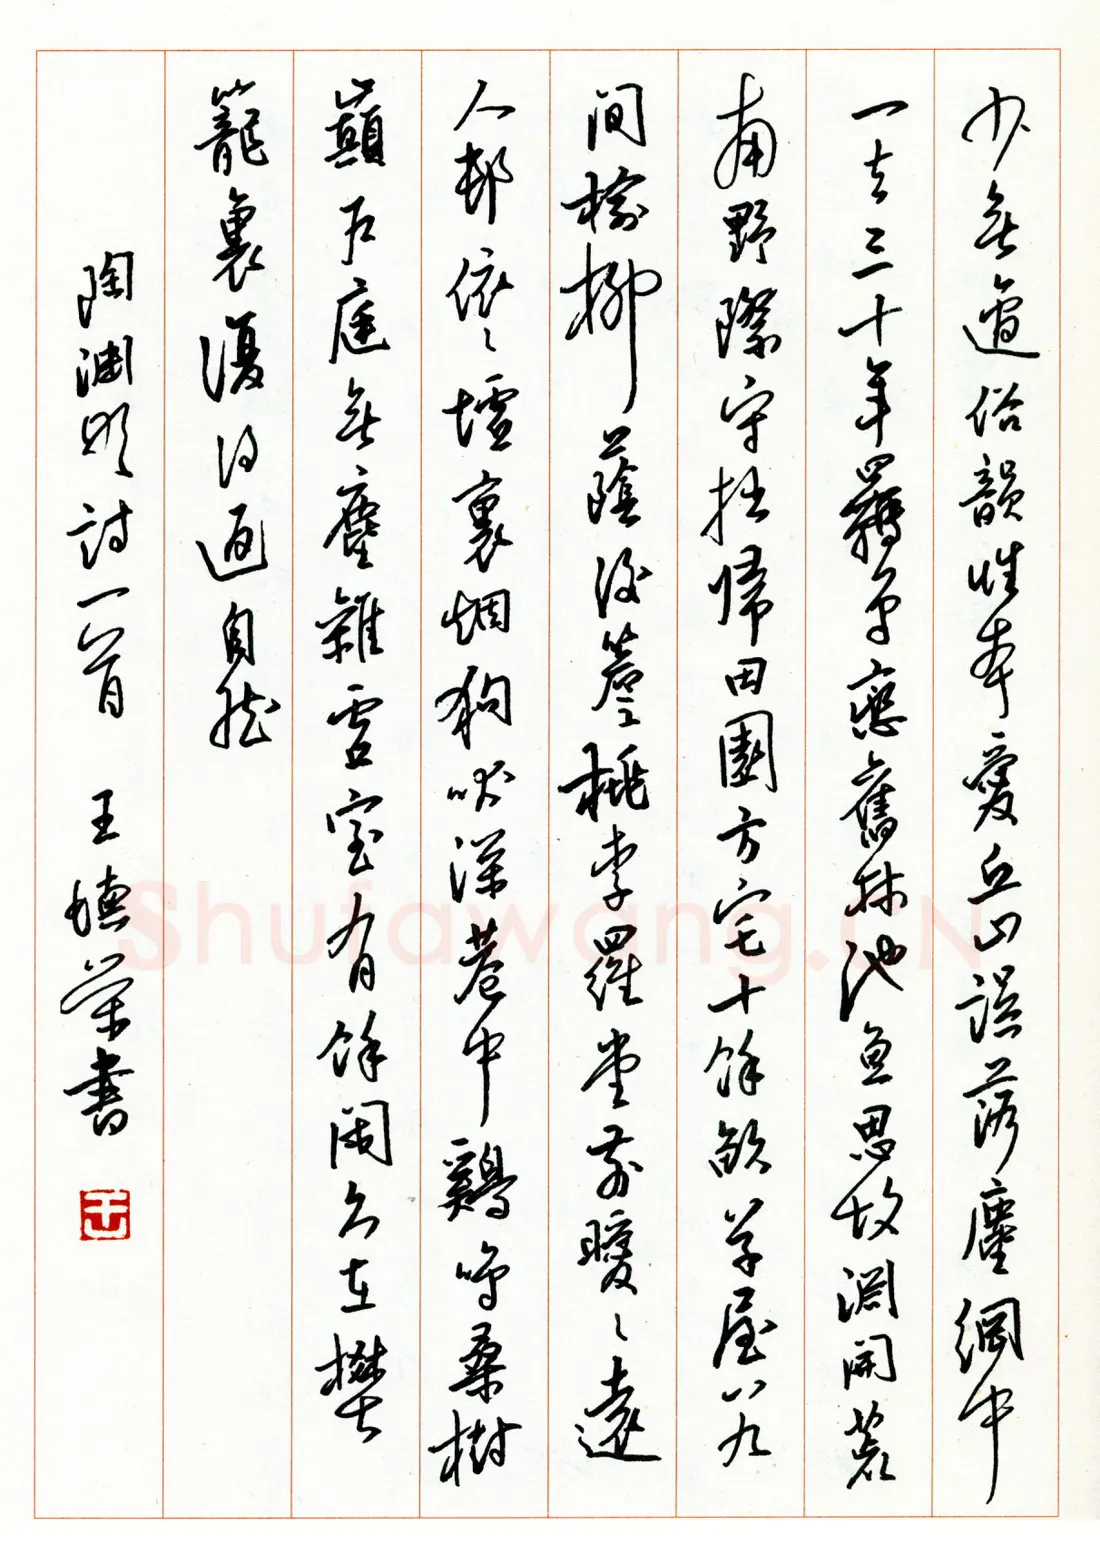 少無適俗韻性本愛丘山誤落塵網中
一去三十年羈鳥戀舊林池魚思故淵開荒
南野際守拙歸田園方宅十餘畝草屋八九
間榆柳蔭後簷桃李羅堂前曖々遠
人邨依々墟裏烟狗吠深巷中鷄鳴桑樹
巔戶庭無塵雜虛室有餘閑久在樊
籠裏復得返自然
陶淵明詩一首 王榮書
王
Shufawang.CN